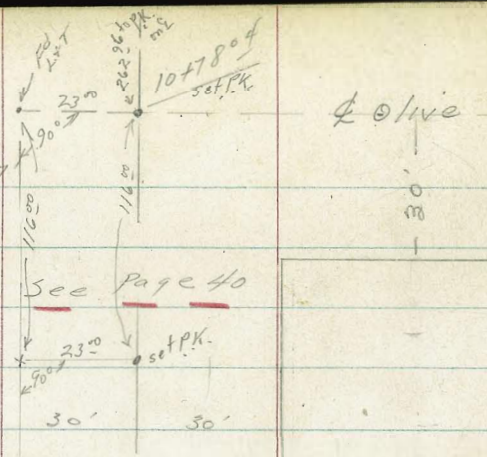 Fd
L&T
262.96 to P.K.
10+78.04
set P.K.
23.00
90°
116.00
116.00
℄ Olive
30'
See Page 40
23.00
set P.K.
90°
30'
30'